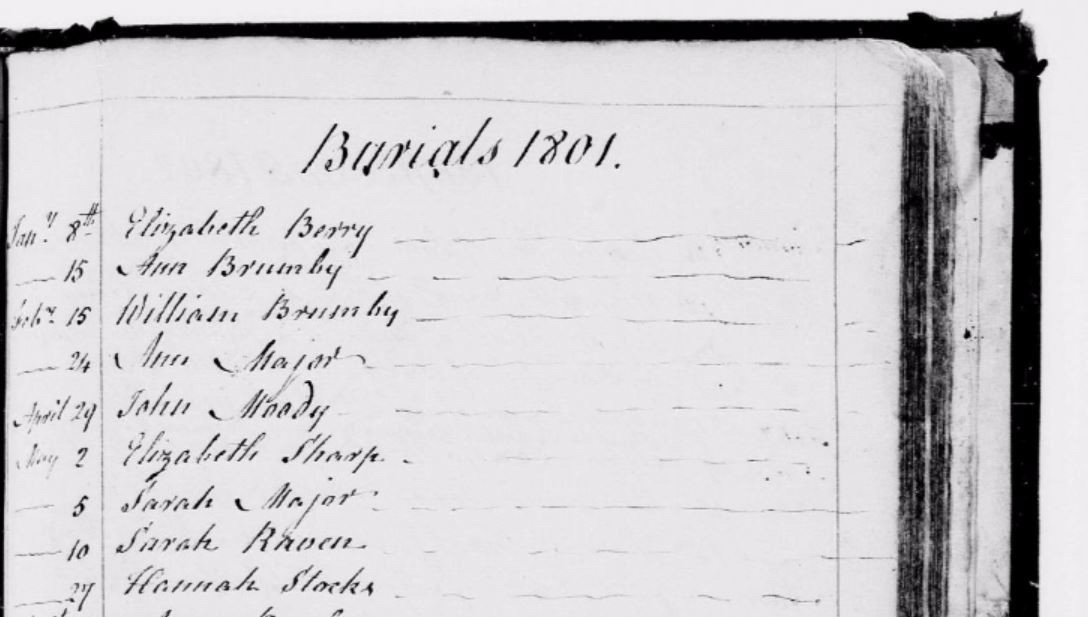 Burials 1801.
Jany. 8th Elizabeth Berry
15 Ann Brumby
Feby. 15 William Brumby
24 Ann Major
April 29 John Moody
May 2 Elizabeth Sharp
5 Sarah Major
10 Sarah Raven
27 Hannah Stocks